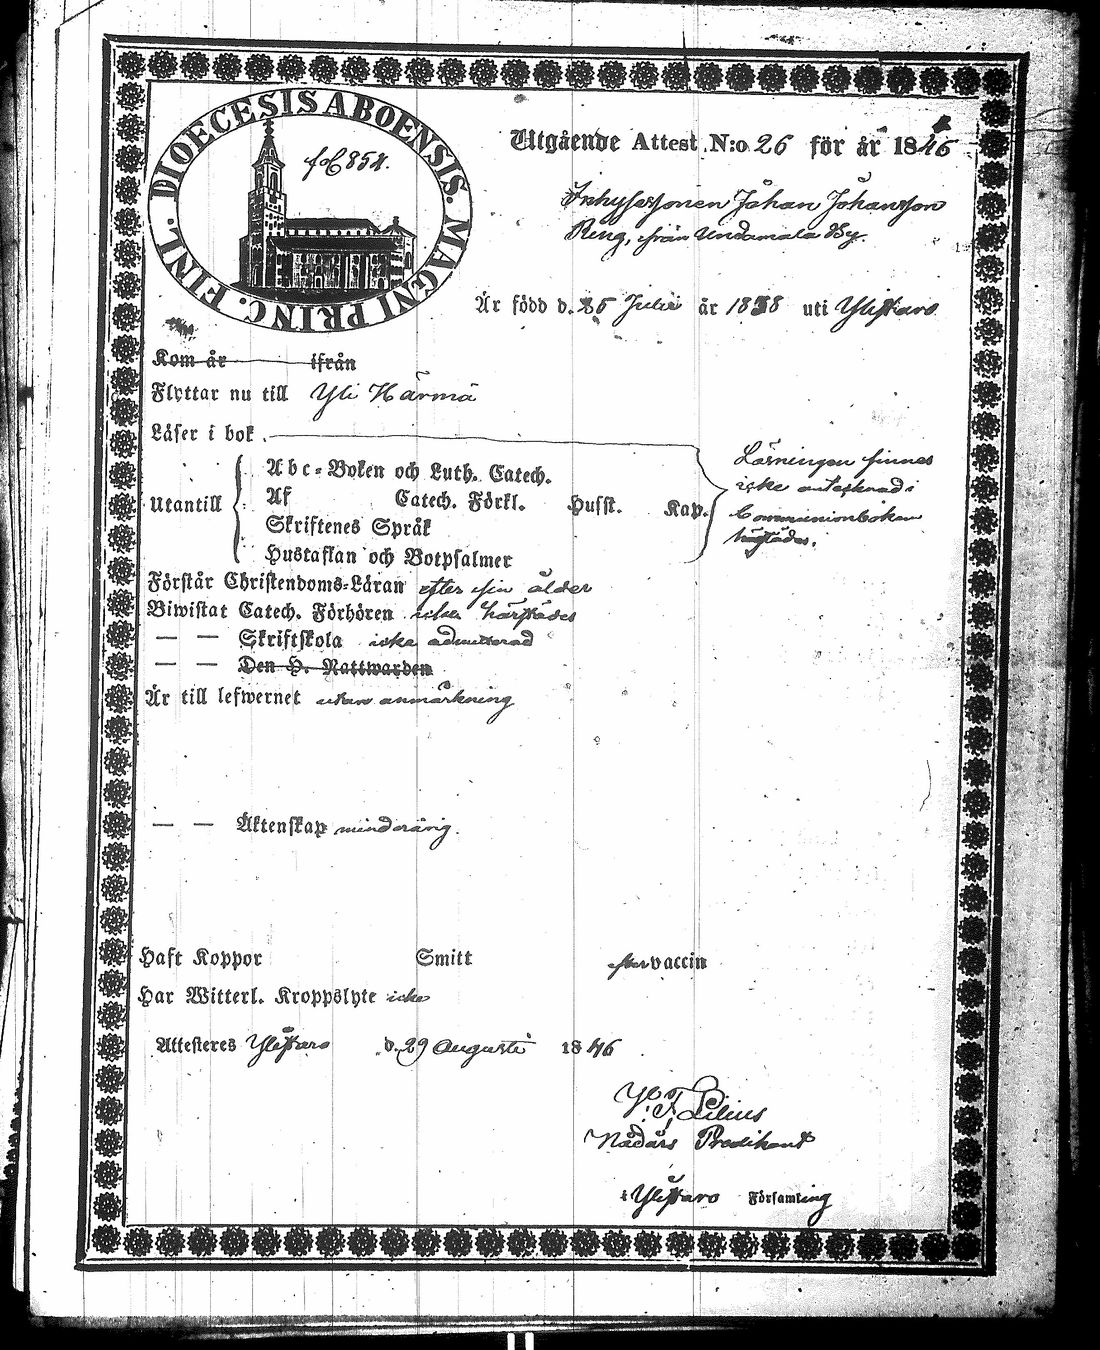 DIOECESIS ABOENSIS. MAGNI PRINC. FINL.
fol 854.
Utgående Attest N:o 26 för år 1846
Inhysessonen Johan Johansson
Ring, från Undamala By.
Är född d. 25 Julii år 1838 uti Ylistaro
Kom år ifrån
Flyttar nu till Yli Härmä
Läser i bok.
Utantill
Abc-Boken och Luth. Catech.
Af Catech. Förkl. Husst. Kap.
Skriftenes Språk
Hustaflan och Botpsalmer
Läsningen finnes
icke antecknad i
Communionboken
härstädes.
Förstår Christendoms-Läran efter sin ålder
Biwistat Catech. Förhören icke härstädes
— — Skriftskola icke admitterad
— — Den H. Nattwarden
Är till lefwernet utan anmärkning
— — Äktenskap minderårig.
Haft Koppor Smitt efter vaccin
Har Witterl. Kroppslyte icke
Attesteres Ylistaro d. 29 Augusti 1846
F. Lilius
Nådårs Predikant
i Ylistaro Församling